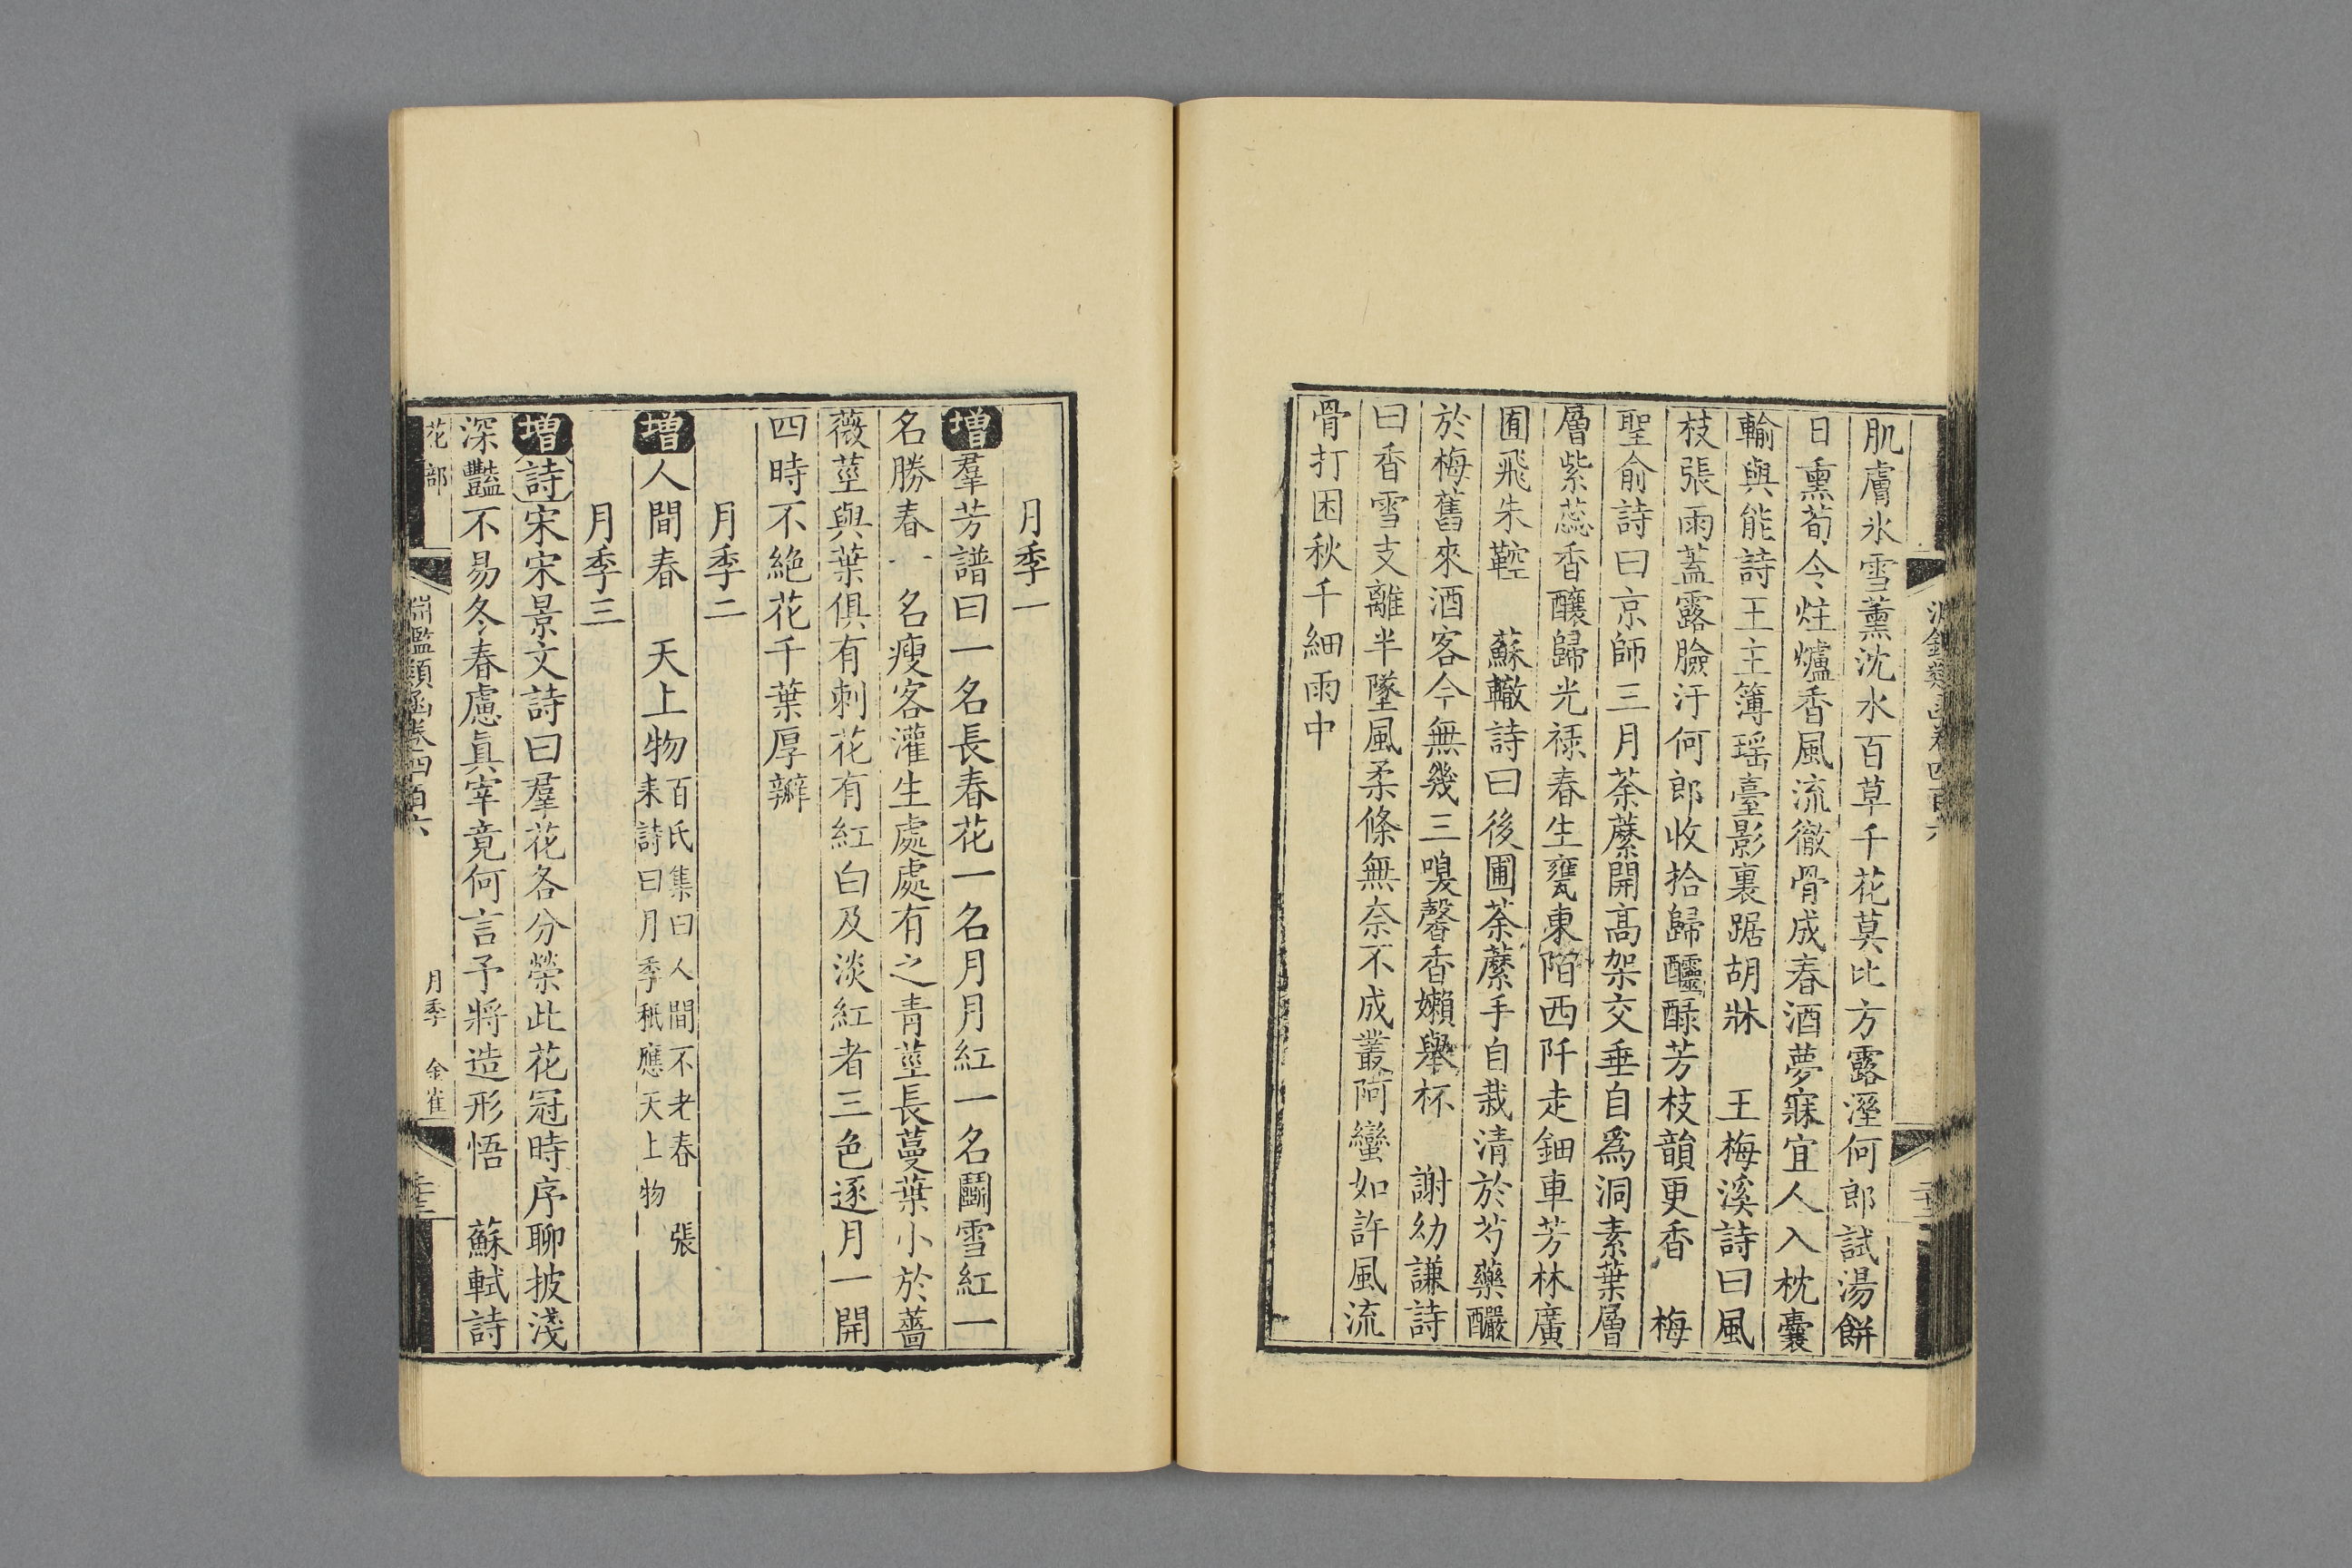 肌膚氷雪薰沈水百草千花莫比方露溼何郎試湯餅
日熏荀令炷爐香風流徹骨成春酒夢寐宜人入枕囊
輸與能詩王主簿瑶臺影裏踞胡牀　王梅溪詩曰風
枝張雨蓋露臉汙何郎收拾歸醽醁芳枝韻更香　梅
聖俞詩曰京師三月荼蘼開高架交垂自爲洞素葉層
層紫蕊香釀歸光祿春生甕東陌西阡走鈿車芳林廣
囿飛朱鞚　蘇轍詩曰後圃荼蘼手自栽清於芍藥釅
於梅舊來酒客今無幾三嗅馨香嬾舉杯　謝幼謙詩
曰香雪支離半墜風柔條無奈不成叢阿蠻如許風流
骨打困秋千細雨中
月季一
增羣芳譜曰一名長春花一名月月紅一名鬭雪紅一
名勝春一名瘦客灌生處處有之青莖長蔓葉小於薔
薇莖與葉俱有刺花有紅白及淡紅者三色逐月一開
四時不絶花千葉厚瓣
月季二
增人間春　天上物百氏集曰人間不老春　張
耒詩曰月季秖應天上物
月季三
增詩宋宋景文詩曰羣花各分榮此花冠時序聊披淺
深豔不易冬春慮眞宰竟何言予將造形悟　蘇軾詩
花部
淵鑑類函卷四百六
月季　金雀